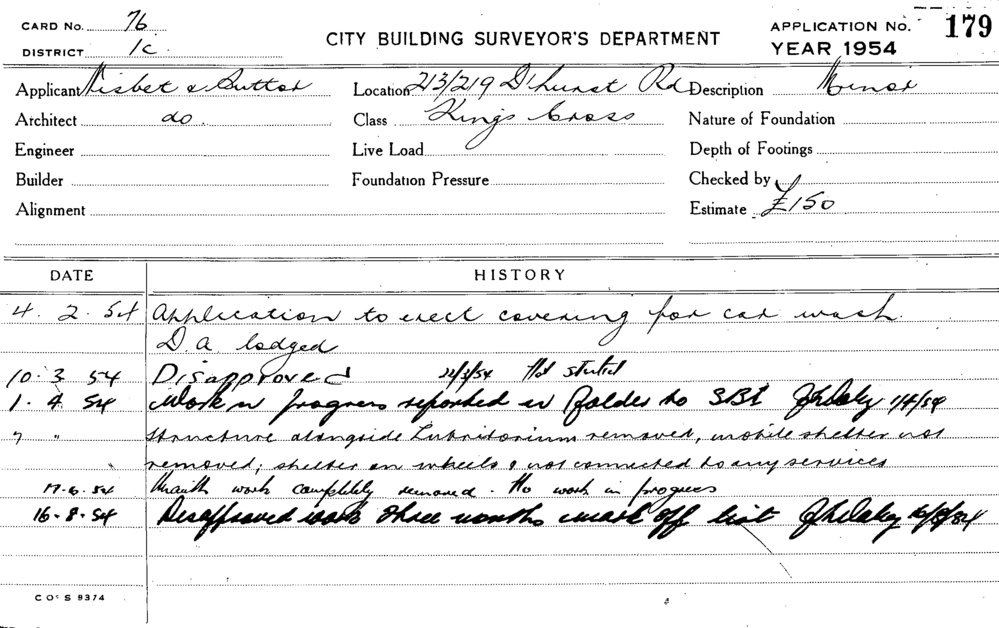 CARD No. 76
DISTRICT 1c.
CITY BUILDING SURVEYOR'S DEPARTMENT
APPLICATION No. 179
YEAR 1954
Applicant Nisbet & Suttor Location 213/219 D'hurst Rd Description Minor
Architect do. Class Kings Cross Nature of Foundation
Engineer Live Load Depth of Footings
Builder Foundation Pressure Checked by
Alignment Estimate £150
DATE HISTORY
4. 2. 54 Application to erect covering for car wash.
D.A. lodged
10. 3. 54 Disapproved 22/3/54 Not started
1. 4. 54 Work in progress reported in folder to SBI 1/4/54
" " Structure alongside Lubritorium removed, mobile shelter not
removed; shelter on wheels & not connected to any services
17.6.54 work completely removed. No work in progress
16-8-54 Disapproved work three months mark off list
CO' S 9374